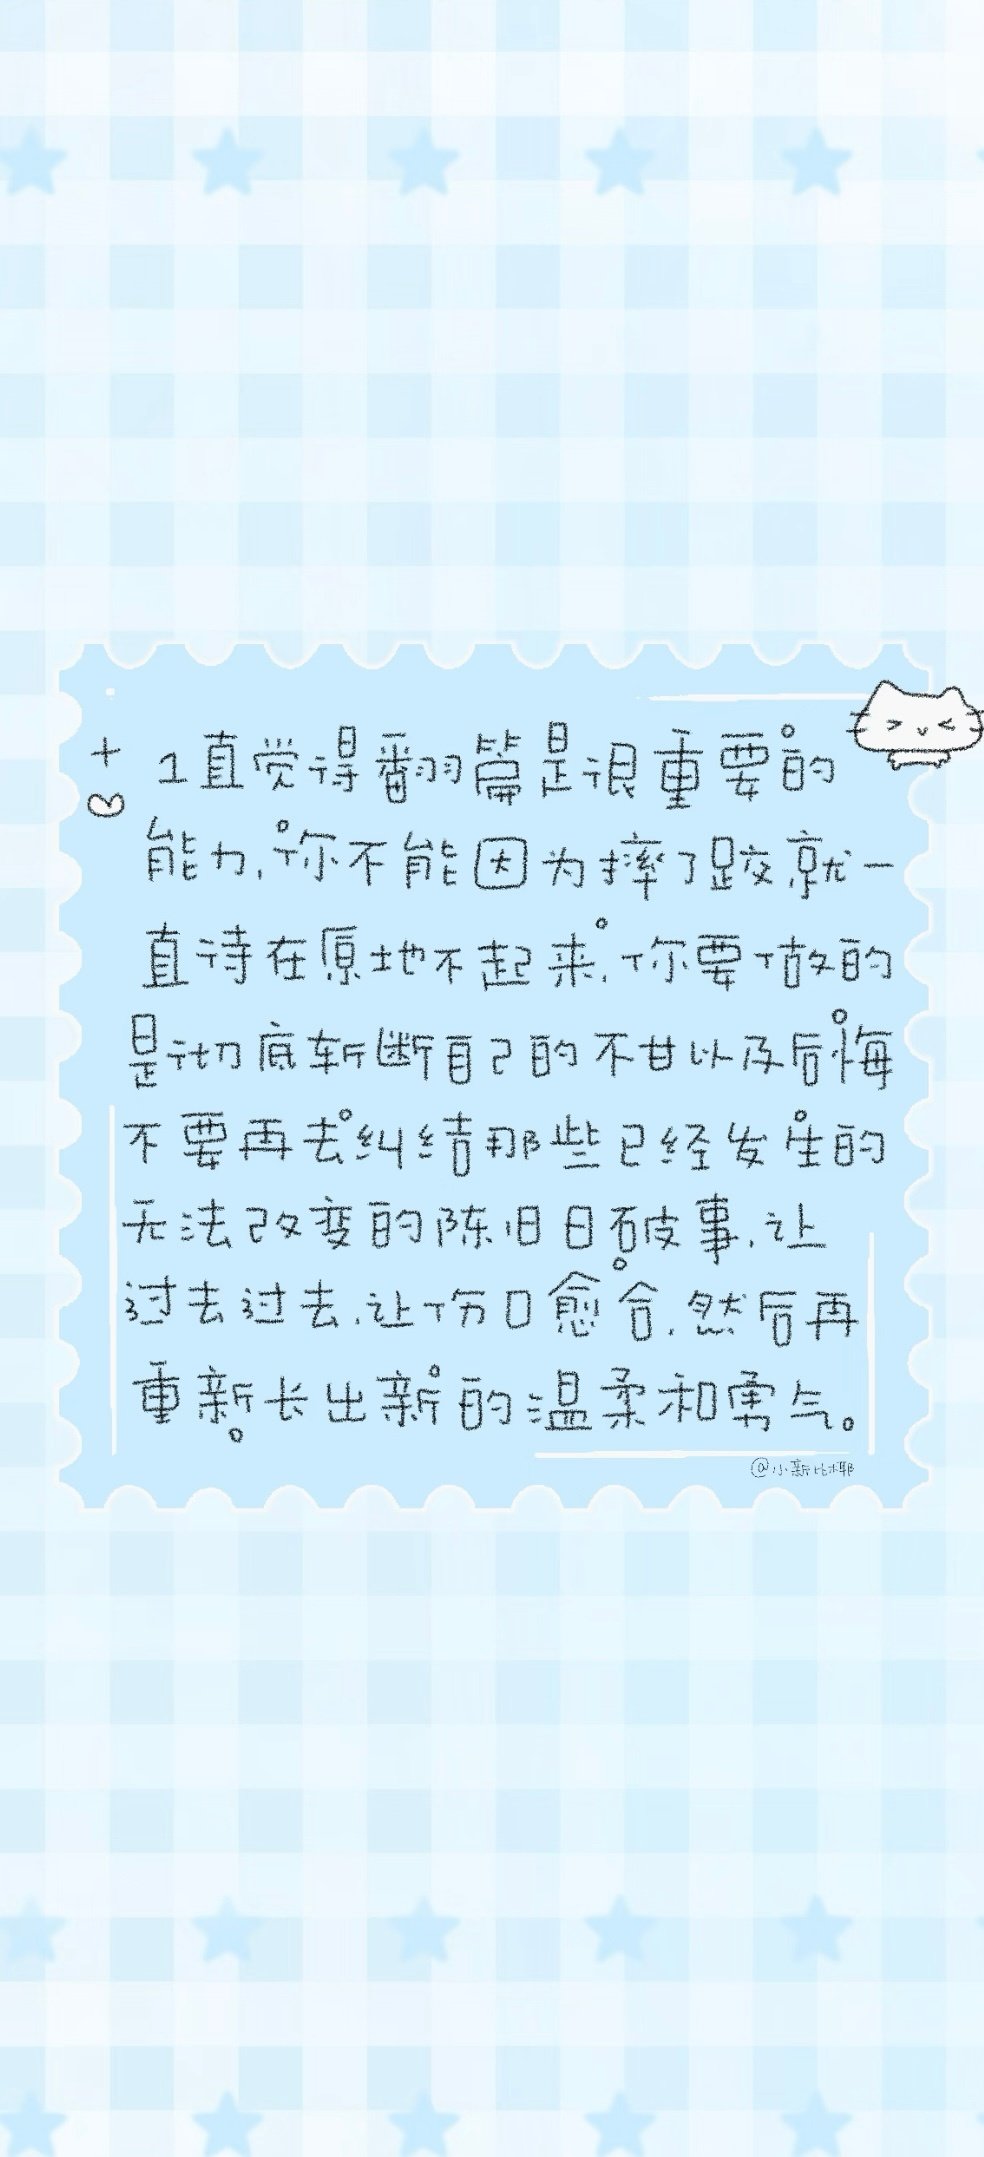 1直觉得翻篇是很重要的
能力,你不能因为摔了跤就一
直待在原地不起来,你要做的
是切底斩断自己的不甘以及后悔
不要再去纠结那些已经发生的
无法改变的陈旧日破事,让
过去过去,让伤口愈合,然后再
重新长出新的温柔和勇气。
@小新比椰